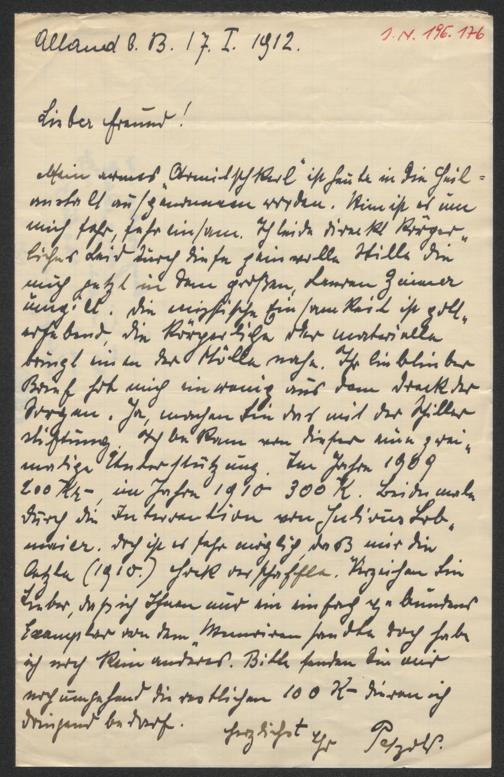 Alland N. B. 17. I. 1912.
I. N. 196.176
Lieber Freund!
Mein armes "Armitschkerl" ist heute in die Heil=
anstalt aufgenommen worden. Nun ist es um
mich sehr, sehr einsam. Ich leide direkt körper-
liches Leid durch diese peinvolle Stille die
mich jetzt in dem großen, leeren Zimmer
umgibt. Die mystische Einsamkeit ist gott-
erhebend, die körperliche oder materielle
bringt einen der Hölle nahe. Ihr lieblieber
Brief hob mich ein wenig aus dem Dreck der
Sorgen. Ja, machen Sie das mit der Schiller
stiftung. Ich bekam von dieser eine zwei-
malige Unterstützung. Im Jahre 1909
200 Kr, im Jahre 1910 300 K. Beidemale
durch die Intervention von Julius Lob-
maier. Doch ist es sehr möglich, daß mir die
letzte (1910.) verschaffte. Verzeihen Sie
Lieber, daß ich Ihnen nur ein einfach gebundenes
Exemplar von den Memoiren sandte doch habe
ich noch kein anderes. Bitte senden Sie mir
noch umgehend die restlichen 100 K die ich
dringend bedarf.
herzlichst Ihr Petzold.